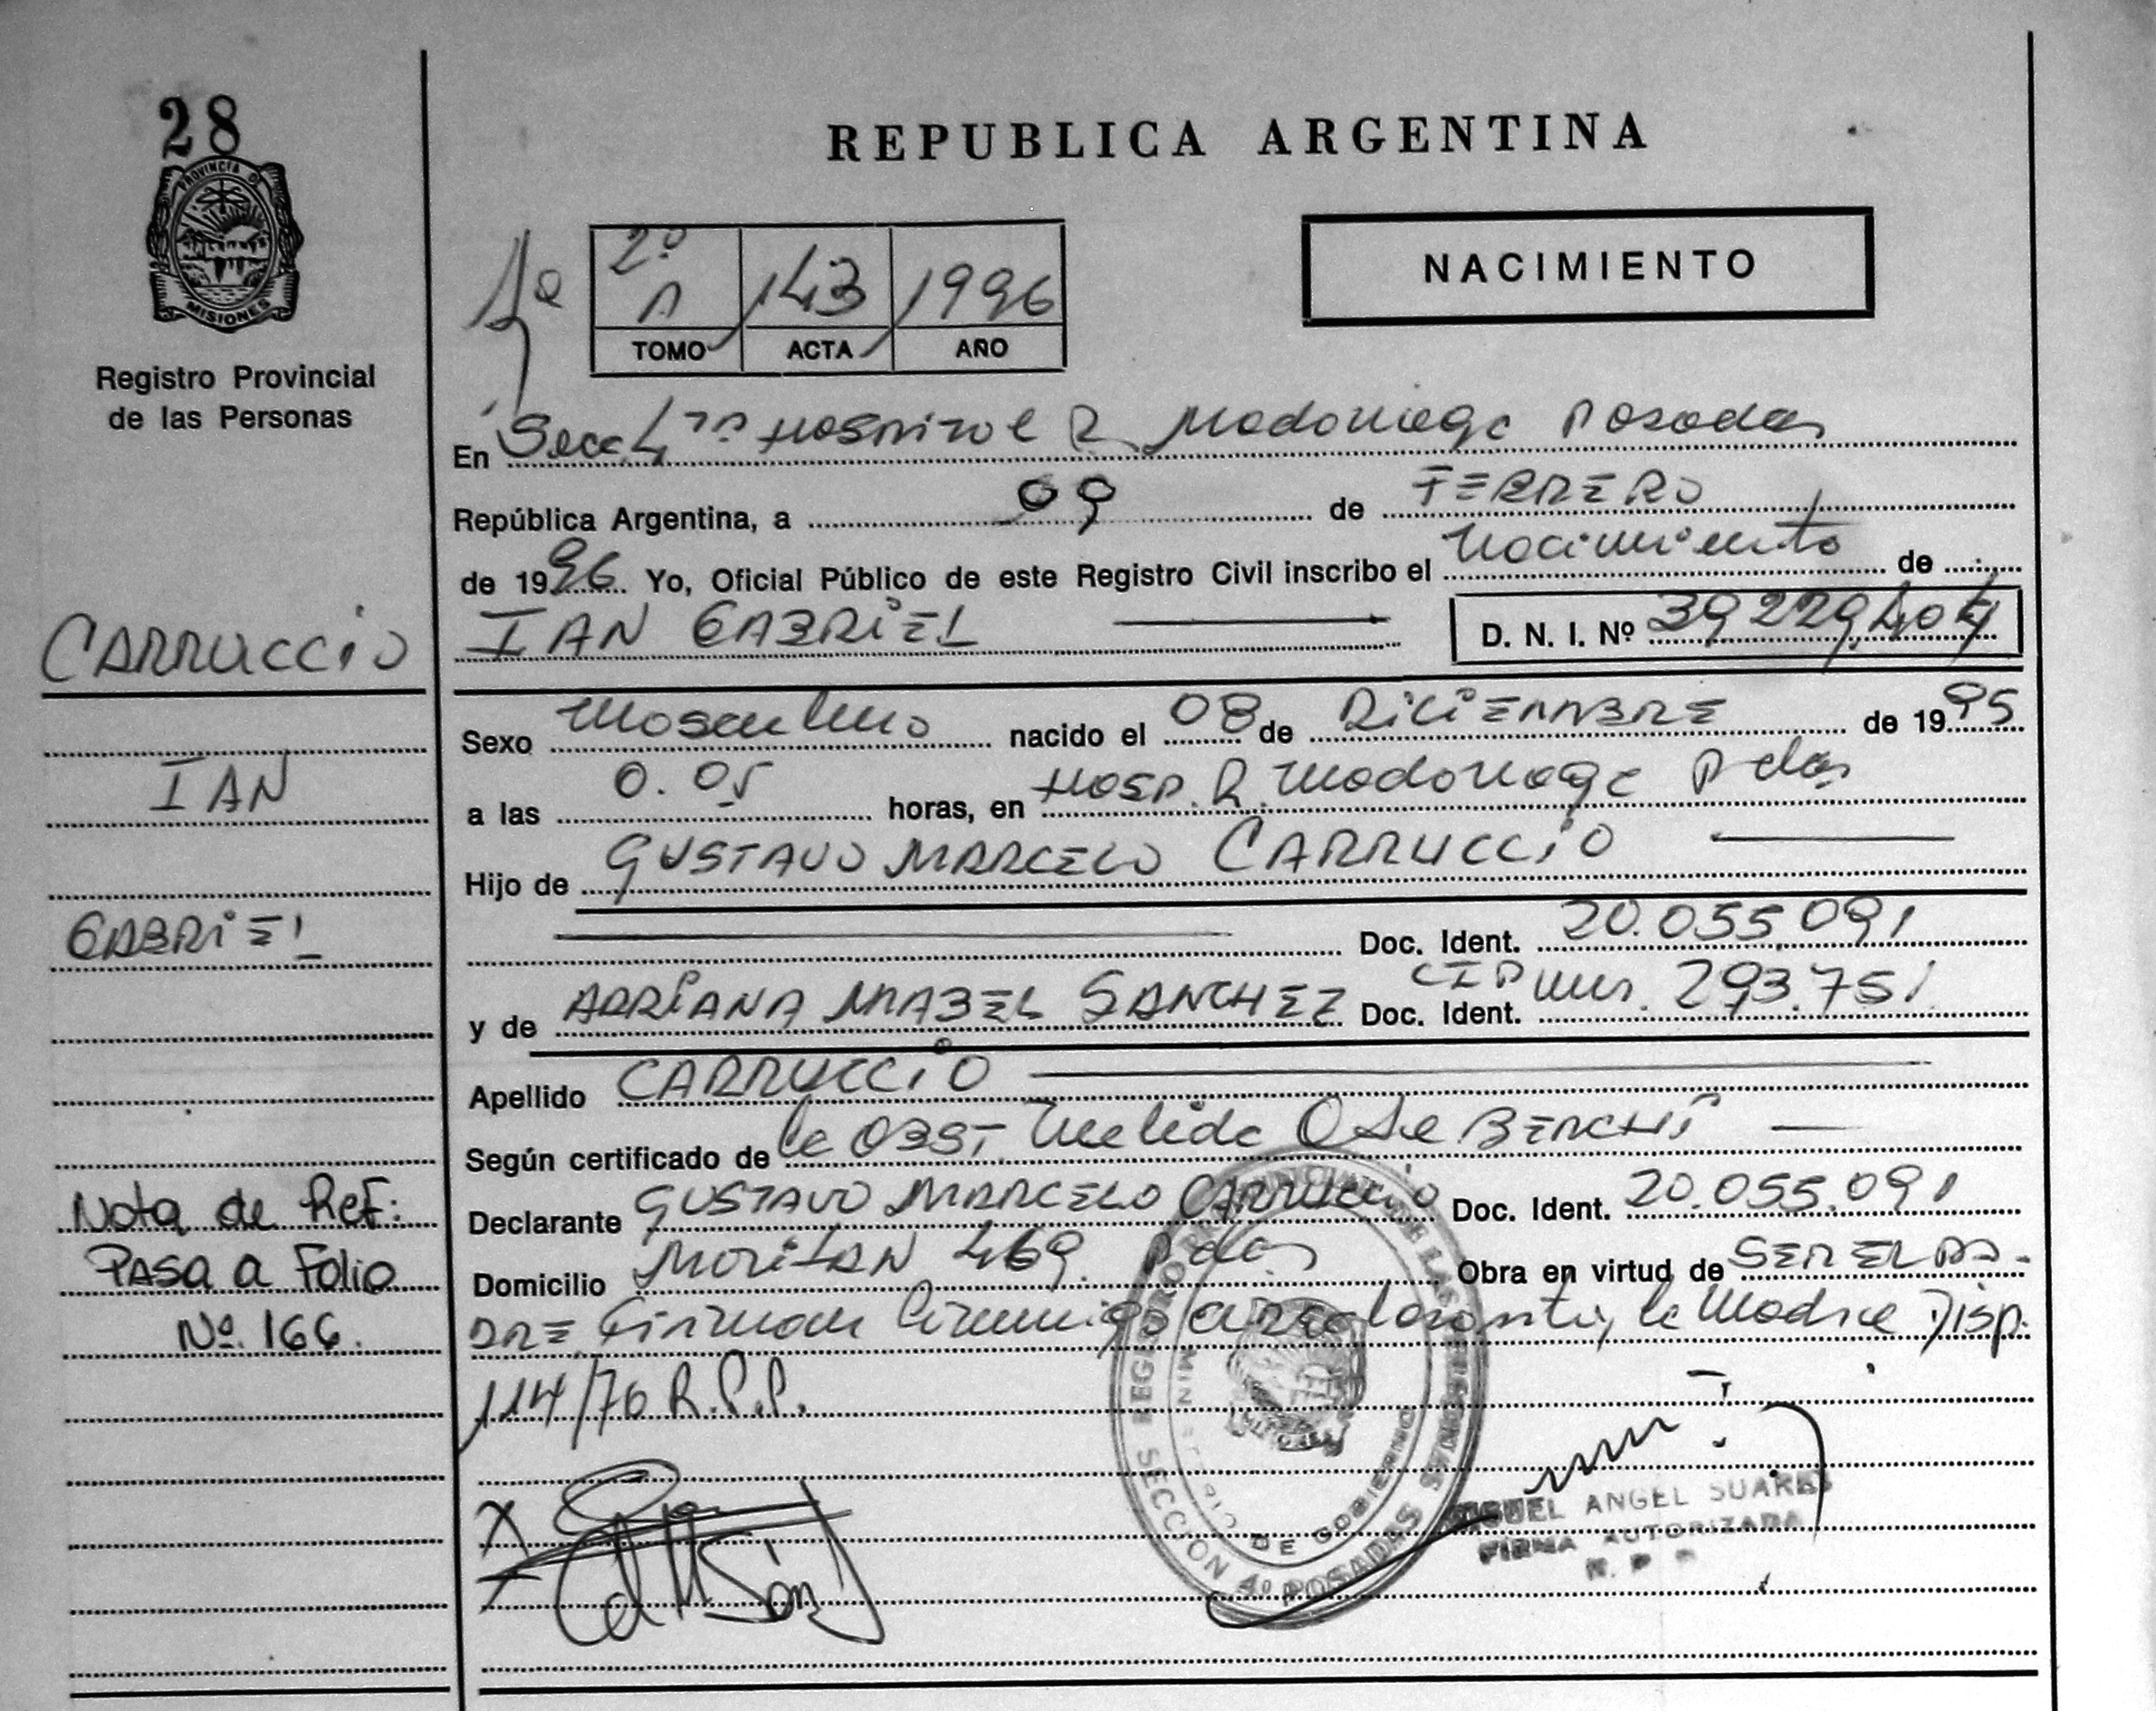 28
PROVINCIA DE
MISIONES
Registro Provincial
de las Personas
REPUBLICA ARGENTINA
NACIMIENTO
4ª
2º A 143 1996
TOMO ACTA AÑO
En Secc. 4ta Hospital R. Madariaga Posadas
República Argentina, a 09 de FEBRERO
de 1996 Yo, Oficial Público de este Registro Civil inscribo el Nacimiento de
CARRUCCIO
IAN GABRIEL D. N. I. Nº 39229404
Sexo Masculino nacido el 08 de DICIEMBRE de 1995
IAN
a las 0.05 horas, en Hosp. R. Madariaga Pdas
Hijo de GUSTAVO MARCELO CARRUCCIO
GABRIEL
Doc. Ident. 20.055.091
y de ADRIANA MABEL SANCHEZ Doc. Ident. CIP Mnes. 293.751
Apellido CARRUCCIO
Según certificado de la OBST. Nelida
Declarante GUSTAVO MARCELO CARRUCCIO Doc. Ident. 20.055.091
Nota de Ref:
Pasa a Folio
Nº. 166.
Domicilio 469. Pdas Obra en virtud de SER EL PA-
DRE Firman conmigo declarante, la Madre Disp.
114/76 R.P.P.
REGISTRO PROVINCIAL DE LAS PERSONAS
SECCION 4º POSADAS
MINISTERIO DE GOBIERNO
MIGUEL ANGEL SUARES
FIRMA AUTORIZADA
R. P. P.